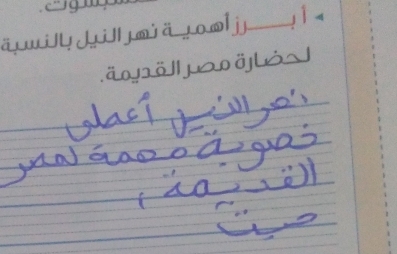 أبرز أهمية نهر النيل بالنسبة
لحضارة مصر القديمة.
نهر النيل أعطى
خصوبة مهمة لمصر
القديمة،
حيث